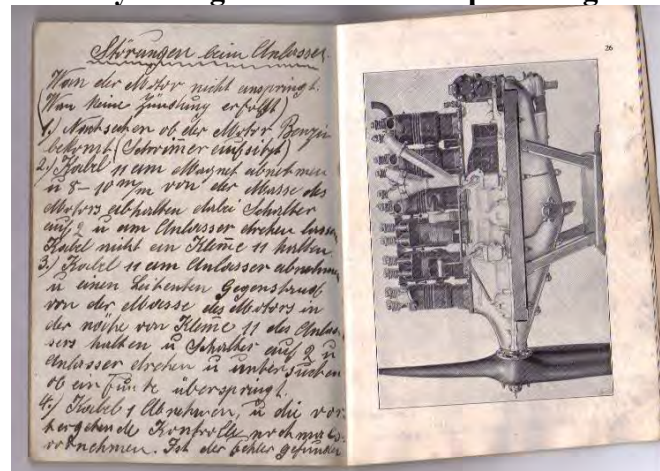 Störungen beim Anlasser.
Wan der Motor nicht anspringt.
(Wan keine Zündung erfolgt)
1.) Nachsehen ob der Motor Benzin
bekomt (Schwimer einfsitzt)
2.) Kabel 11 am Magnet abnehmen
u 8-10 m/m von der Masse des
Motors abhalten dabei Schalter
auf 2 u am Anlasser drehen lassen
Kabel nicht an Kleme 11 halten
3.) Kabel 11 am Anlasser abnehmen
u einen Leitenten Gegenstand
von der Masse des Motors in
der nähe von Kleme 11 des Anlas-
sers halten u Schalter auf 2 u
Anlasser drehen u untersuchen
ob ein Funke überspringt.
4.) Kabel 1 Abnehmen, u die vor-
hergehende Kontrolle nochmals
vornehmen. Ist der Fehler gefunden
26